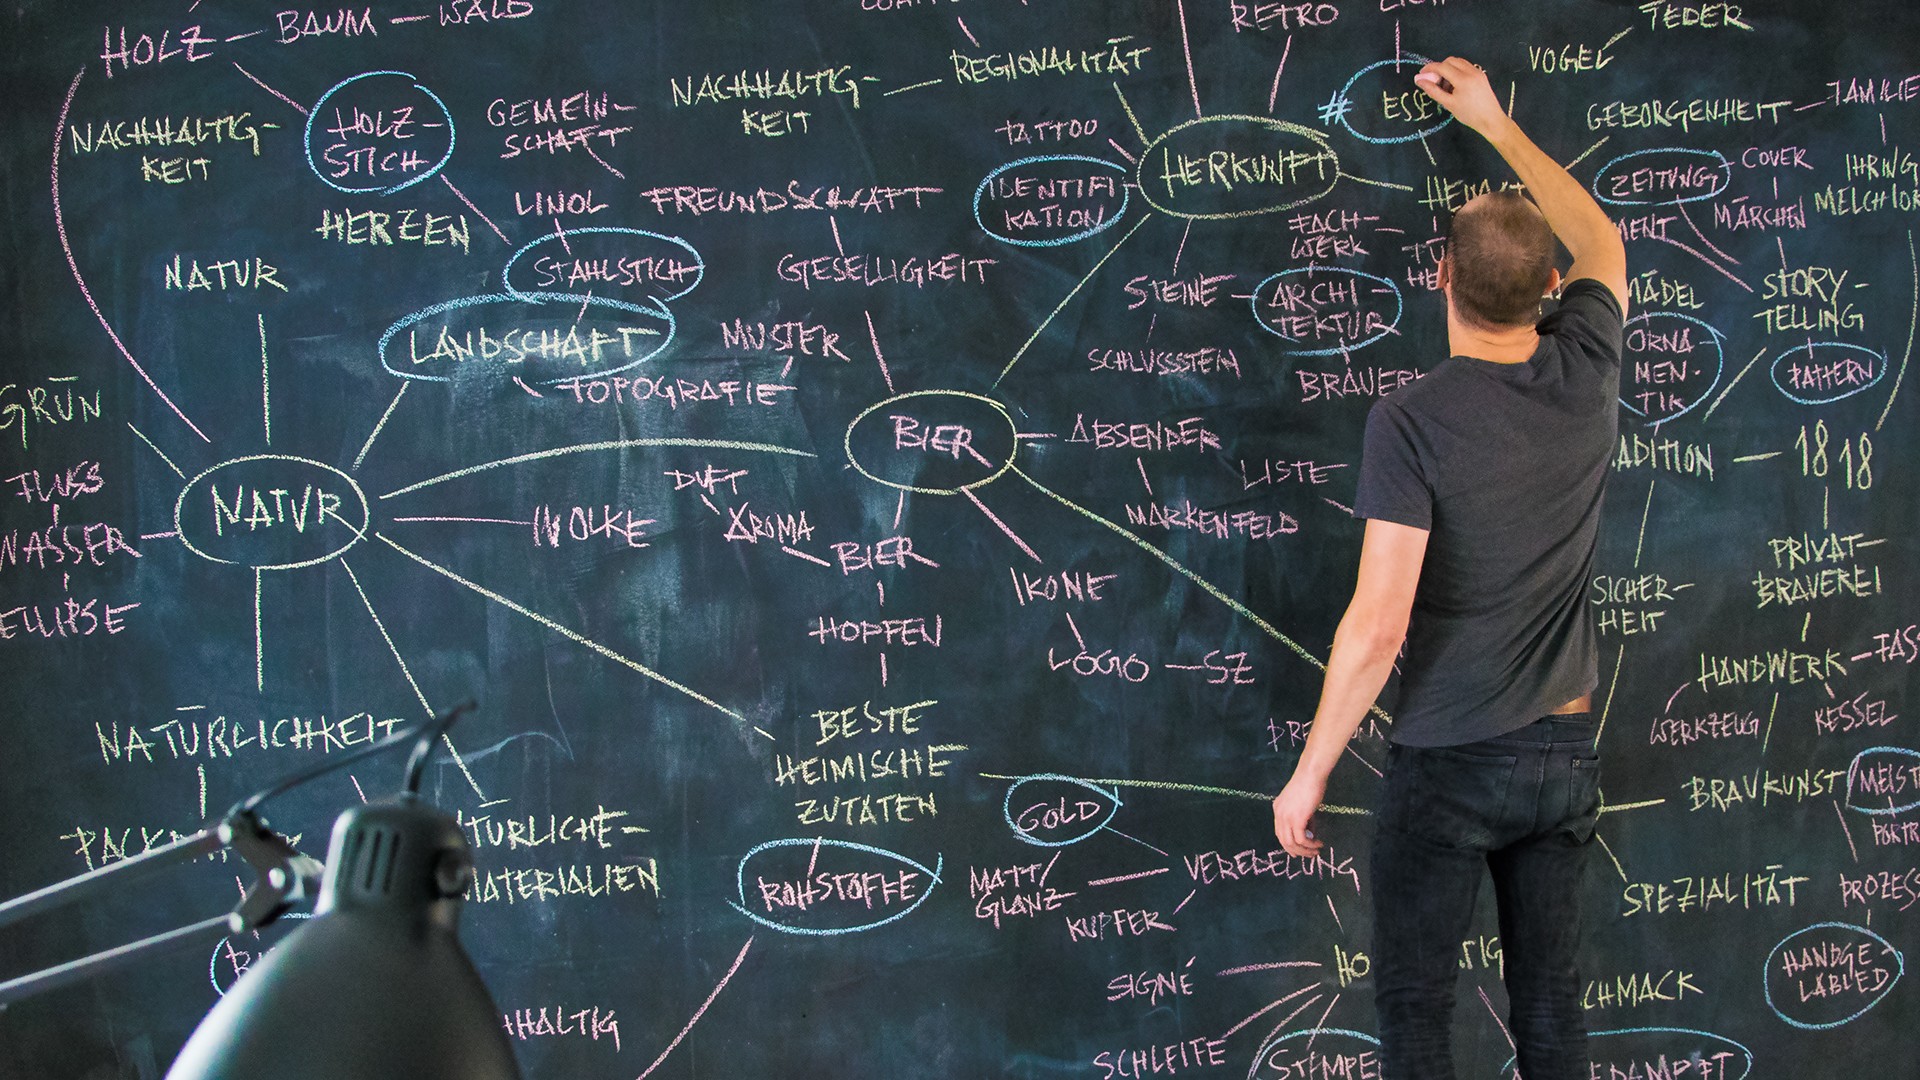 HOLZ — BAUM — WALD
RETRO
FEDER
VOGEL
NACHHALTIG-
KEIT
HOLZ-
STICH
GEMEIN-
SCHAFT
NACHHALTIG-
KEIT
REGIONALITÄT
#
GEBORGENHEIT
FAMILIE
TATTOO
IDENTIFI-
KATION
HERKUNFT
ZEITUNG
COVER
MÄRCHEN
IHRING
MELCHIOR
HERZEN
LINOL
FREUNDSCHAFT
NATUR
STAHLSTICH
GESELLIGKEIT
FACH-
WERK
STEINE
ARCHI-
TEKTUR
STORY-
TELLING
LANDSCHAFT
MUSTER
TOPOGRAFIE
SCHLUSSSTEIN
MÄDEL
ORNA-
MEN-
TIK
PATTERN
GRÜN
FLUSS
WASSER
ELLIPSE
NATUR
BIER
ABSENDER
LISTE
MARKENFELD
ADITION — 1818
WOLKE
DUFT
AROMA
BIER
HOPFEN
IKONE
LOGO — SZ
SICHER-
HEIT
PRIVAT-
BRAUEREI
HANDWERK — FASS
WERKZEUG
KESSEL
NATÜRLICHKEIT
BESTE
HEIMISCHE
ZUTATEN
BRAUKUNST
TÜRLICHE-
MATERIALIEN
GOLD
ROHSTOFFE
MATT/
GLANZ
VEREDELUNG
KUPFER
SPEZIALITÄT
PROZESS
HANDGE-
LABLED
SIGNÉ
HO
CHMACK
HALTIG
SCHLEIFE
STEMPE